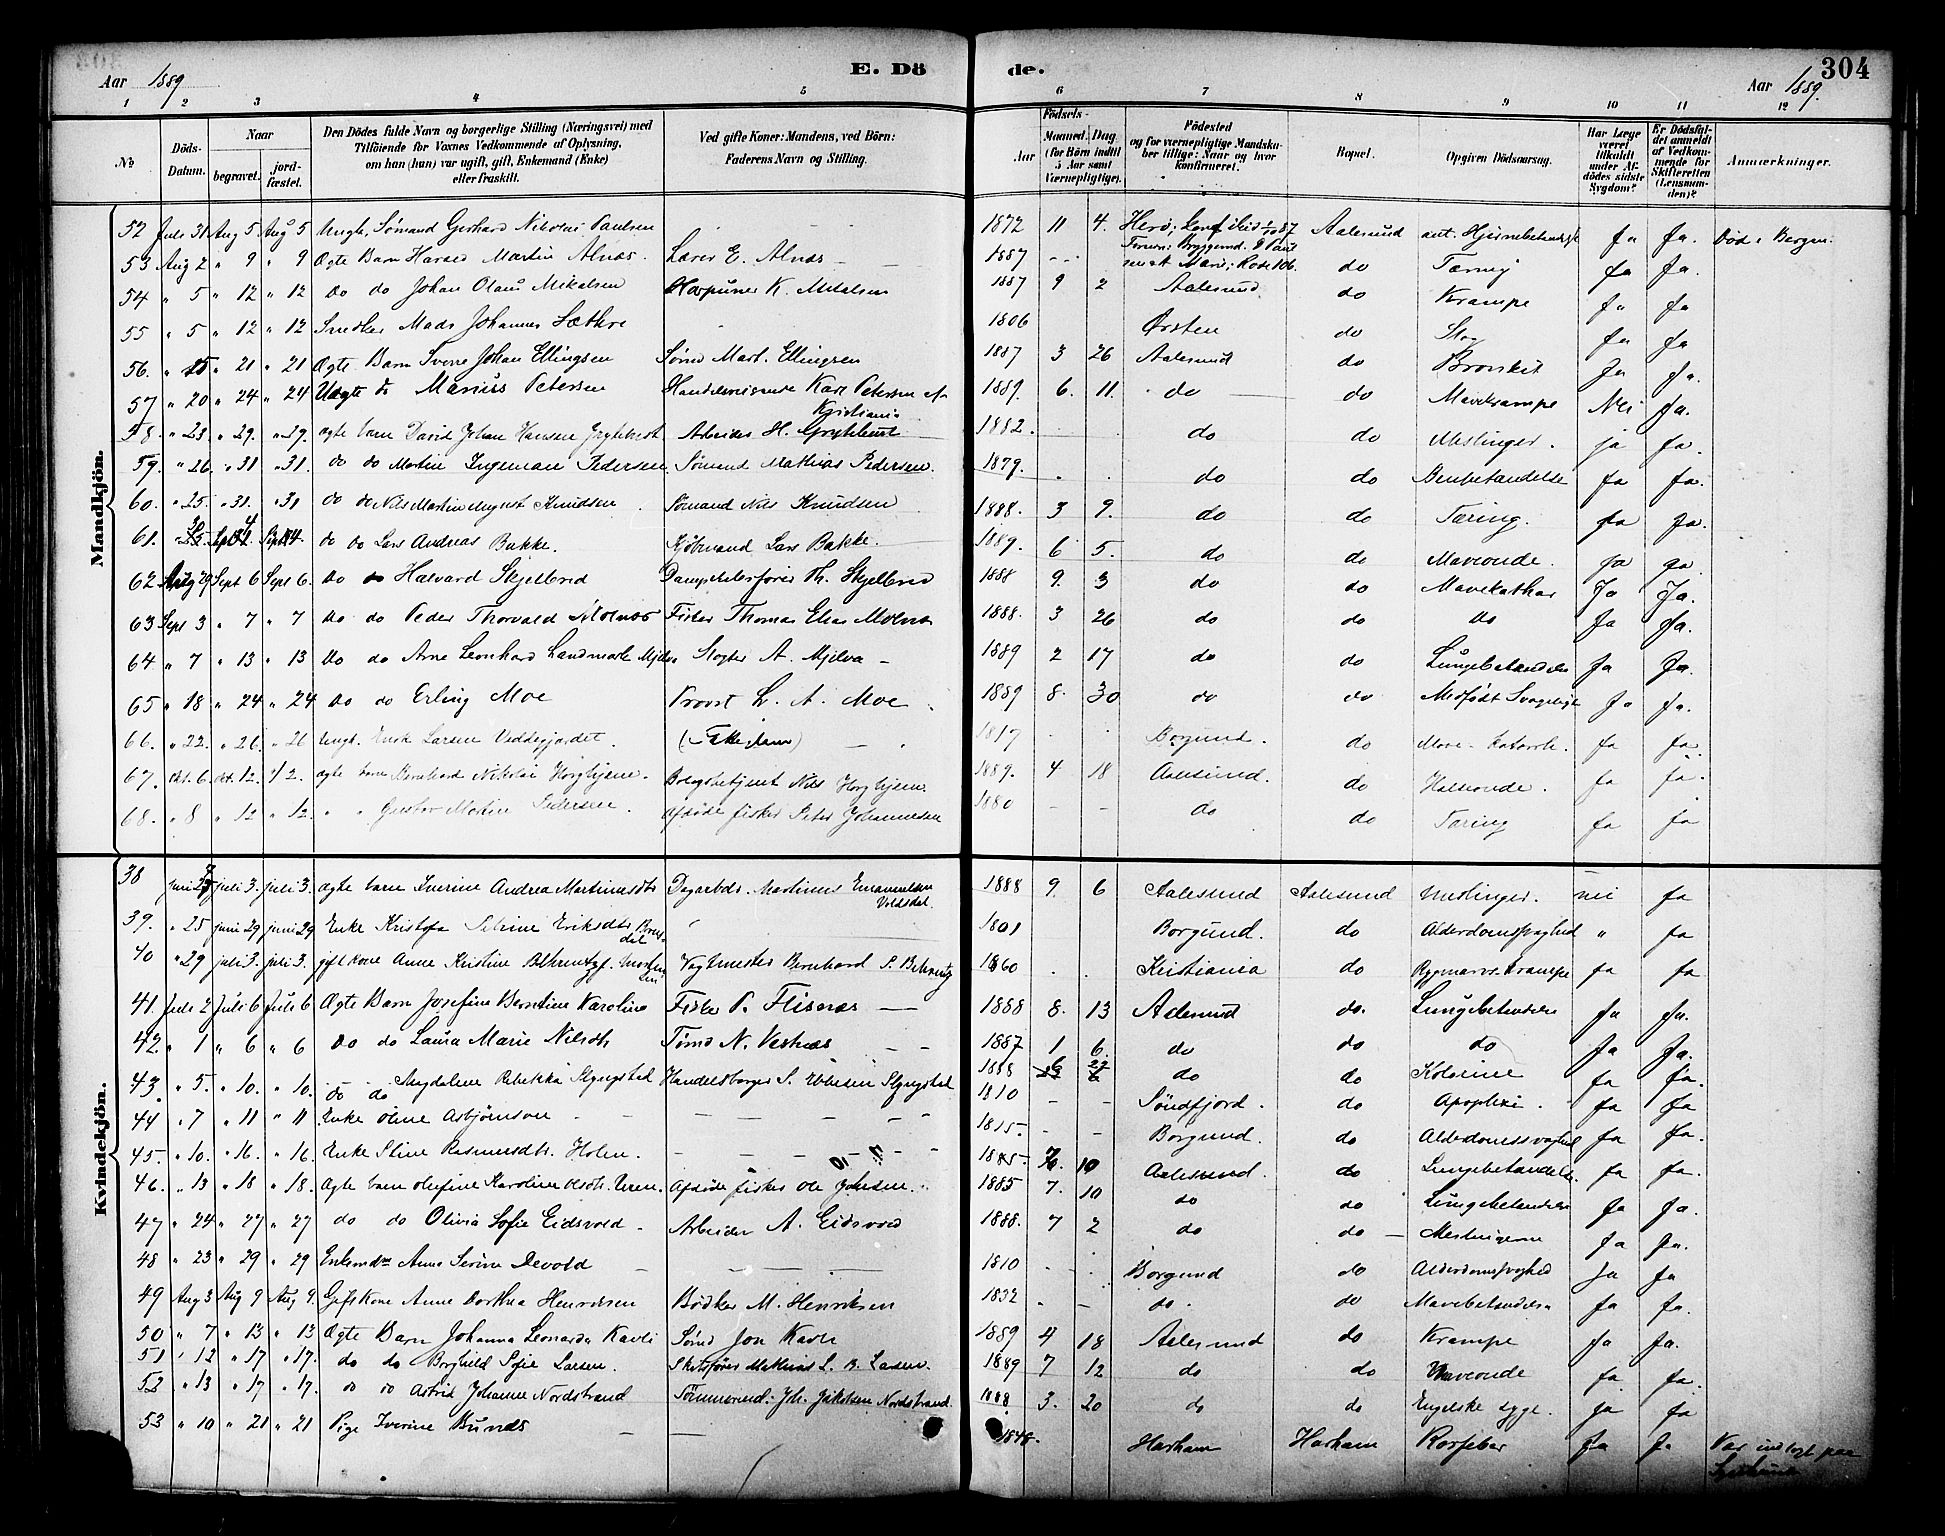 304
Aar 1889
E. Dö
de.
Aar 1889.
1 2 3 4 5 6 7 8 9 10 11 12
No
Döds-Datum.
Naar
begravet.
jord-fæstet.
Den Dödes fulde Navn og borgerlige Stilling (Næringsvei) med
Tilföiende for Voxnes Vedkommende af Oplysning,
om han (hun) var ugift, gift, Enkemand (Enke)
eller fraskilt.
Ved gifte Koner: Mandens, ved Börn:
Faderens Navn og Stilling.
Födsels-
Aar
Maaned. Dag
(for Börn indtil
5 Aar samt
Værnepligtige).
Födested
og for værnepligtige Mandska-
ber tillige: Naar og hvor
konfirmeret.
Bopæl.
Opgiven Dödsaarsag.
Har Læge
været
tilkaldt
under Af-
dödes sidste
Sygdom?
Er Dödsfal-
det anmeldt
af Vedkom-
mende for
Skifteretten
(Lensman-
den)?
Anmærkninger.
Mandkjön.
52 Juli 31 Aug 5 Aug 5 Ungk. Sømand Gerhard Nikolai Paulsen 1872 11 4. Herø; Aalesund Ja Ja. Død i Bergen.
53 Aug 2 " 9 " 9 Ægte Barn Martin Alnæs. Lærer E. Alnæs 1887 do Tæring Ja Ja.
54 " 5 " 12 " 12 do do Johan Olaus Mikalsen K. Mikalsen 1887 9 2 Aalesund. do Krampe Ja Ja
55 " 5 " 12 " 12 Snedker Mads Johannes Sæthre 1806 Ørsten do Slag Ja Ja
56. " 15 " 21 " 21 Ægte Barn Sverre Johan Ellingsen Sømd Mart. Ellingsen 1887 3 26 Aalesund do Bronkit Ja Ja.
57 " 20 " 24 " 24 Uægte do Marius Petersen Handelsreisende Karl Petersen af Kristiania 1889. 6. 11. do do Mavekrampe Nei Ja.
58. " 23 " 29. " 29. ægte barn David Johan Hansen Grytehust Arbeider H. Grytehust 1882. do do Meslinger. ja Ja.
59. " 26. " 31 " 31. do do Martin Ingeman Pedersen Sømand Mathias Pedersen. 1879. do do Benbetændelse Ja Ja.
60. " 25. " 31. " 31 do do Nils Martin August Knudsen Sømand Nils Knudsen 1888. 3 9. do do Tæring. Ja Ja.
61. Sept 4 Sept 4. do do Lars Andreas Bakke. Kjøbmand Lars Bakke. 1889. 6 5. do do Maveonde. Ja Ja
62 Aug 29 Sept 6 Sept 6. do do Halvard Skjelbred Dampskibsfører Th. Skjelbred 1888 9. 3 do do Mavekathar Ja Ja.
63 Sept 3 " 7 " 7 do do Peder Thorvald Molnæs Fisker Thomas Elias Molnæs 1888. 3 26 do do do Ja Ja.
64 " 7 " 13 " 13 do do Arne Leonhard Landmark Mjelva Slagter A. Mjelva 1889 2 17 do do Lungebetændelse Ja Ja
65 " 18 " 24 " 24 do do Erling Moe Provst L. A. Moe 1889 8. 30 do do Medfødt Svagelighed Ja Ja.
66. " 22. " 26. " 26 Ungk. Erik Larsen Veddegjerdet. 1817 Borgund. do Mave-katarrh. Ja Ja.
67. Okt. 6 Okt. 12. " 12. ægte barn Bernhard Nikolai Horghjem. Bolagsbetjent Nils Horghjem 1889. 4 18 Aalesund. do Halsonde. Ja Ja.
68. " 8 " 12 " 12. " " Gustav Martin Pedersen. Afdøde fisker Peter Johannesen 1880 do do Tæring Ja Ja
Kvindekjön.
38 juni 27 juli 3. juli 3. ægte barn Iverine Andrea Martinusdtr Dagarbdr. Martinus Emanuelsen Voldsdal. 1888 9. 6 Aalesund Aalesund Meslinger. nei Ja
39. " 25 juni 29 juni 29 Enke Kristofa Seline Eriksdtr 1801 Borgund. do Alderdomssvaghed " Ja
40 " 29 juli 3. juli 3. gift kone Anne Kristine Vagtmester Bernhard S. Behrentz 1860 Kristiania do Rygmarvs-krampe Ja Ja
41. Juli 2 Juli 6 Juli 6 Ægte Barn Josefine Berntine Karoline Fisker P. Flisnæs 1888 8. 13 Aalesund do. Lungebetændelse Ja Ja.
42. " 1 " 6 " 6 do do Laura Marie Nilsdtr Tømd N. Vestnæs 1887 1 6. do do do Ja Ja.
43. " 5. " 10. " 10. do do Magdalene Rebekka Slyngstad Handelsborger S. Ebbesen Slyngstad 1888 6 27 do do Kolerine Ja Ja.
44 " 7 " 11 " 11 Enke Oline Asbjørnsen 1810 Søndfjord. do Apoplexi. Ja Ja
45. " 10. " 16. " 16. Enke Stine Rasmusdtr. Holen. 1815. Borgund. do Alderdomssvaghed Ja Ja.
46. " 13 " 18 " 18. Ægte barn Olufine Karoline Olsdtr. Afdøde fisker Ole 1885 7. 10 Aalesund. do Lungebetændelse Ja Ja.
47 " 24 " 27 " 27 do do Olivia Sofie Eidsvold. Arbeider A. Eidsvold 1885 7. 10 do do Lungebetændelse Ja Ja.
48 " 23 " 29 " 29 Anne Serine Devold 1888. 7 2 do do Meslingerne Ja Ja.
49 Aug 3 Aug 9 Aug 9. Gift Kone Anne Dorthea Henriksen Bødker M. Henriksen 1810 Borgund do Alderdomssvaghed Ja Ja
50 " 7 " 13 " 13 Ægte Barn Johanna Leonarda Kavli Sømd Jon Kavli 1832 do. do Mavebetændelse Ja Ja.
51 " 12 " 17 " 17. do do Borghild Sofie Larsen. Skibsfører Mathias L. B. Larsen. 1889 4 18 Aalesund do Krampe Ja Ja.
52 " 13 " 17 " 17. do do Astrid Johanne Nordstrand Tømmermd. Joh. Jakobsen Nordstrand. 1889 7 12 do do Maveonde Ja Ja.
53 " 10 " 21 " 21 Pige Iverine Bundes 1888 3. 20 do do Engelske syge. Ja Ja
1848. Harham Harham Rosfeber Ja Ja Var indlagt paa Sygehuset